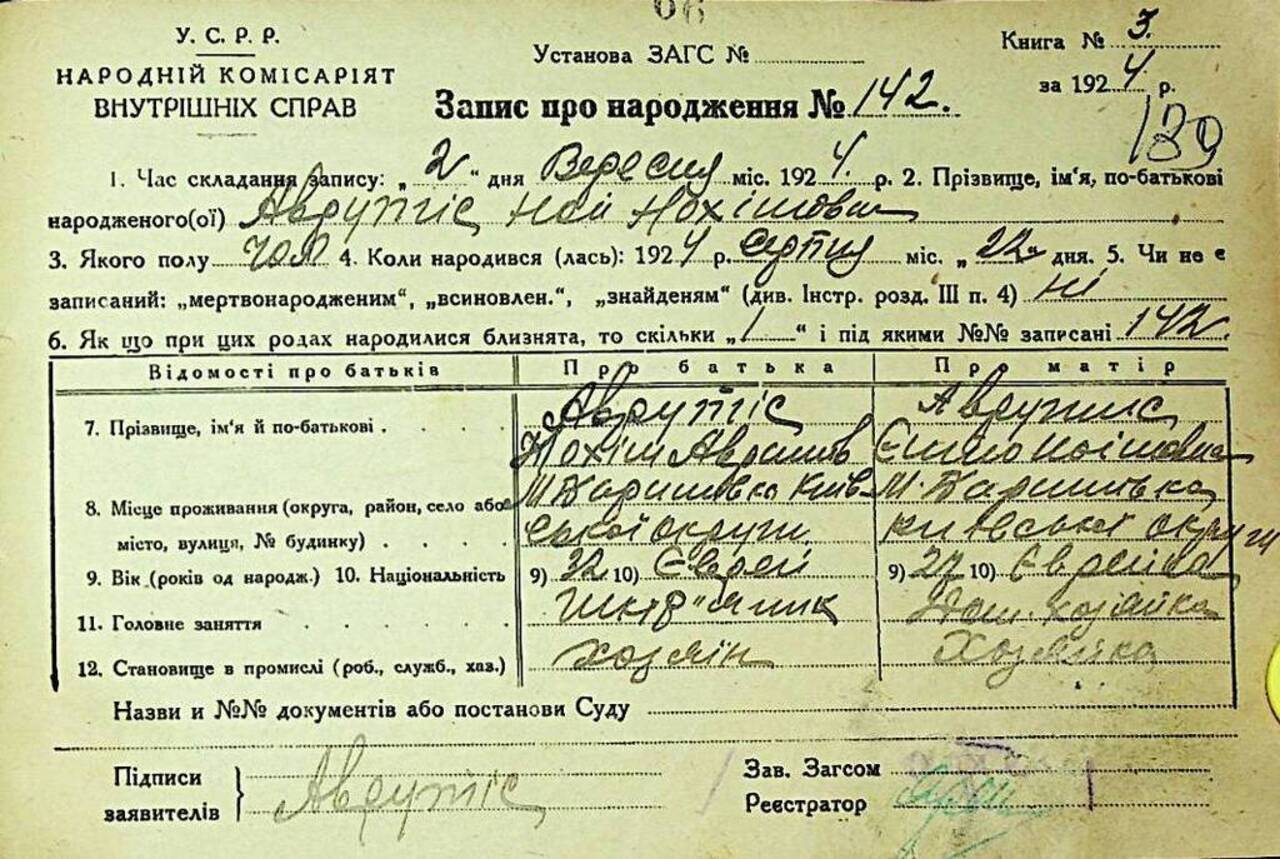 У. С. Р. Р.
НАРОДНІЙ КОМІСАРІЯТ
ВНУТРІШНІХ СПРАВ
Установа ЗАГС №
Книга № 3.
за 1924 р.
Запис про народження № 142.
139
1. Час складання запису: „ 2 " дня Вересня міс. 1924. р. 2. Прізвище, ім'я, по-батькові
народженого(ої) Аврутіс Ной Нохімович
3. Якого полу чол 4. Коли народився (лась): 1924 р. серпня міс. „ 22 " дня. 5. Чи не є
записаний: „мертвонародженим", „всиновлен.", „знайденям" (див. Інстр. розд. III п. 4) ні
6. Як що при цих родах народилися близнята, то скільки „ 1 " і під якими №№ записані 142.
Відомості про батьків Про батька Про матір
7. Прізвище, ім'я й по-батькові . . . . Аврутіс Аврутис
Нохім Аврумов
8. Місце проживання (округа, район, село або
місто, вулиця, № будинку) . . . .
ської округи київської округи
9. Вік (років од народж.) 10. Національність 9) 32 10) Єврей 9) 27 10) Єврейка
11. Головне заняття . . . . . Дом. хозяйка
12. Становище в промислі (роб., служб., хаз.) хозяїн Хозяйка
Назви и №№ документів або постанови Суду
Підписи
заявителів
Аврутіс
Зав. Загсом
Реєстратор